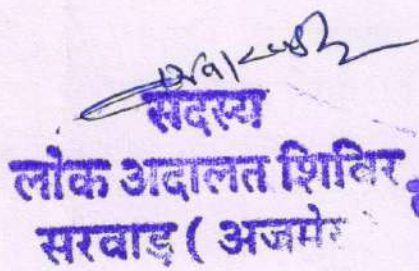 सदस्य
लोक अदालत शिविर
सरवाड़ ( अजमेर